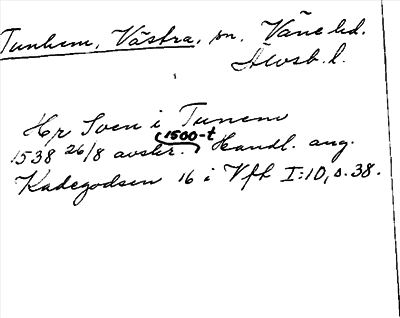 Tunhem, Västra, sn. Väne hd.
Älvsb. l.
Hr Sven i Tunem
1538 26/8 avskr. 1500-t Handl. ang.
Kadegodsen 16 i Vfh I:10, s. 38.